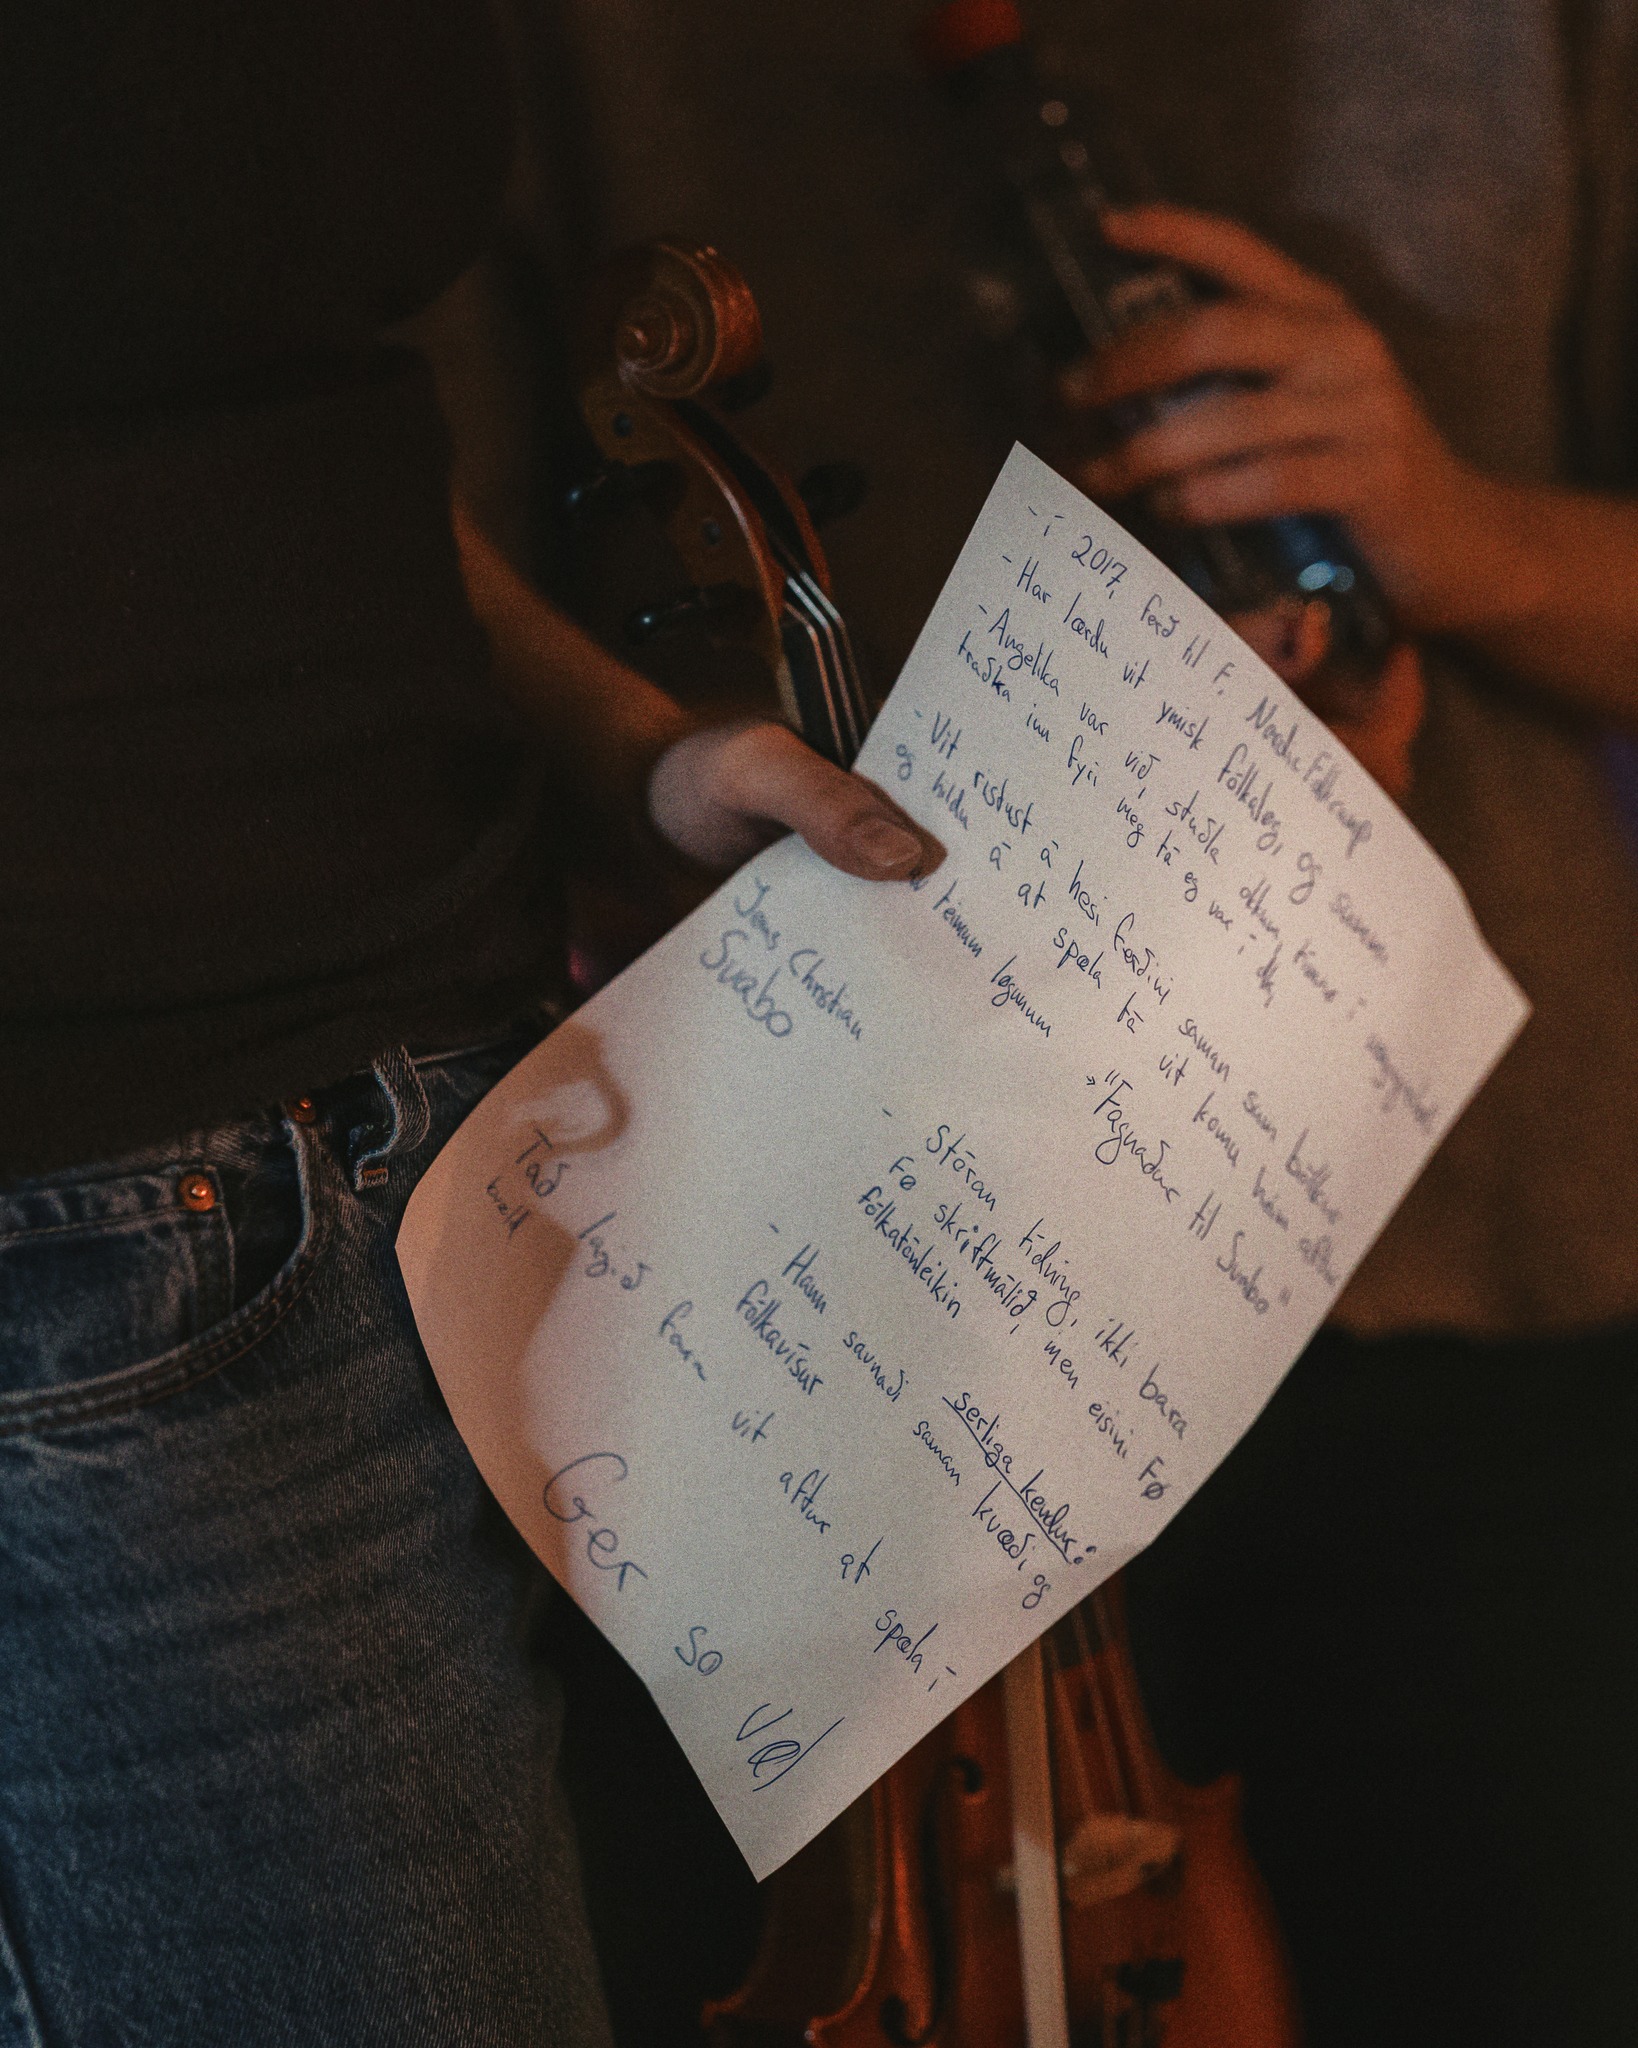 - í 2017, ferð til F. Nordic Folkcamp
- Har lærdu vit ymisk fólkaløg, og saman
- Angelika var við, stuðla okkum trane í
traðka inn fyri meg tá eg var í
- Vit ristust á hesi ferðini saman sum bólkur
og hildu á at spæla tá vit komu heim aftur
av teimum løgunum → "Fagnaður til Svabo"
Jens Christian
Svabo
- Stóran týdning, ikki bara
FØ skriftmálið, men eisini FØ
fólkatónleikin
serliga kendur:
- Hann savnaði saman kvæði og
fólkavísur
Tað lagið fara vit aftur at spæla í
kvøld
Ger so væl